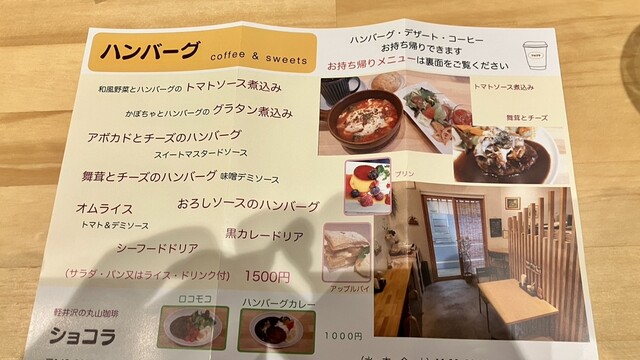 ハンバーグ coffee & sweets
ハンバーグ・デザート・コーヒー
お持ち帰りできます
お持ち帰りメニューは裏面をご覧ください
和風野菜とハンバーグの トマトソース煮込み
かぼちゃとハンバーグの グラタン煮込み
アボカドとチーズのハンバーグ
スイートマスタードソース
舞茸とチーズのハンバーグ 味噌デミソース
オムライス
トマト&デミソース
おろしソースのハンバーグ
シーフードドリア
黒カレードリア
(サラダ・パン又はライス・ドリンク付) 1500円
トマトソース煮込み
舞茸とチーズ
プリン
アップルパイ
軽井沢の丸山珈琲
ショコラ
ロコモコ
ハンバーグカレー
1000円